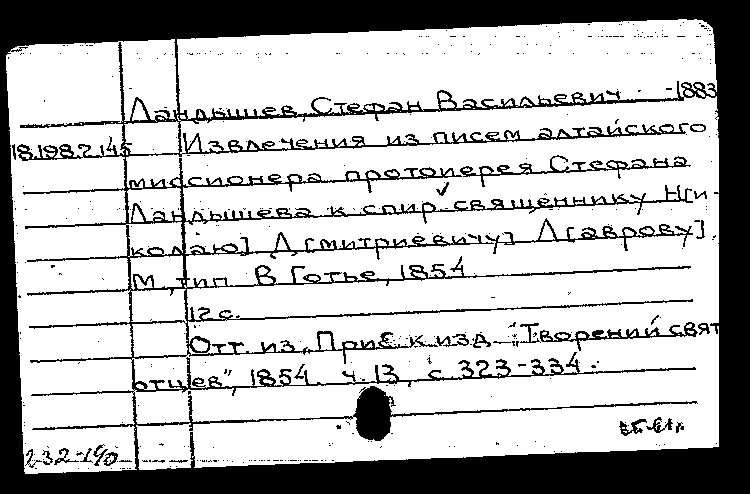 Ландышев, Стефан Васильевич. -1883
18.198.2.145 Извлечения из писем алтайского
миссионера протоиерея Стефана
Ландышева к спир. священнику Н[и-
колаю] Д[митриевичу] Л[аврову].
М., тип. В. Готье, 1854.
12 с.
Отт. из „Приб. к изд. „Творений свят
отцев", 1854. ч. 13, с. 323-334.
232-190